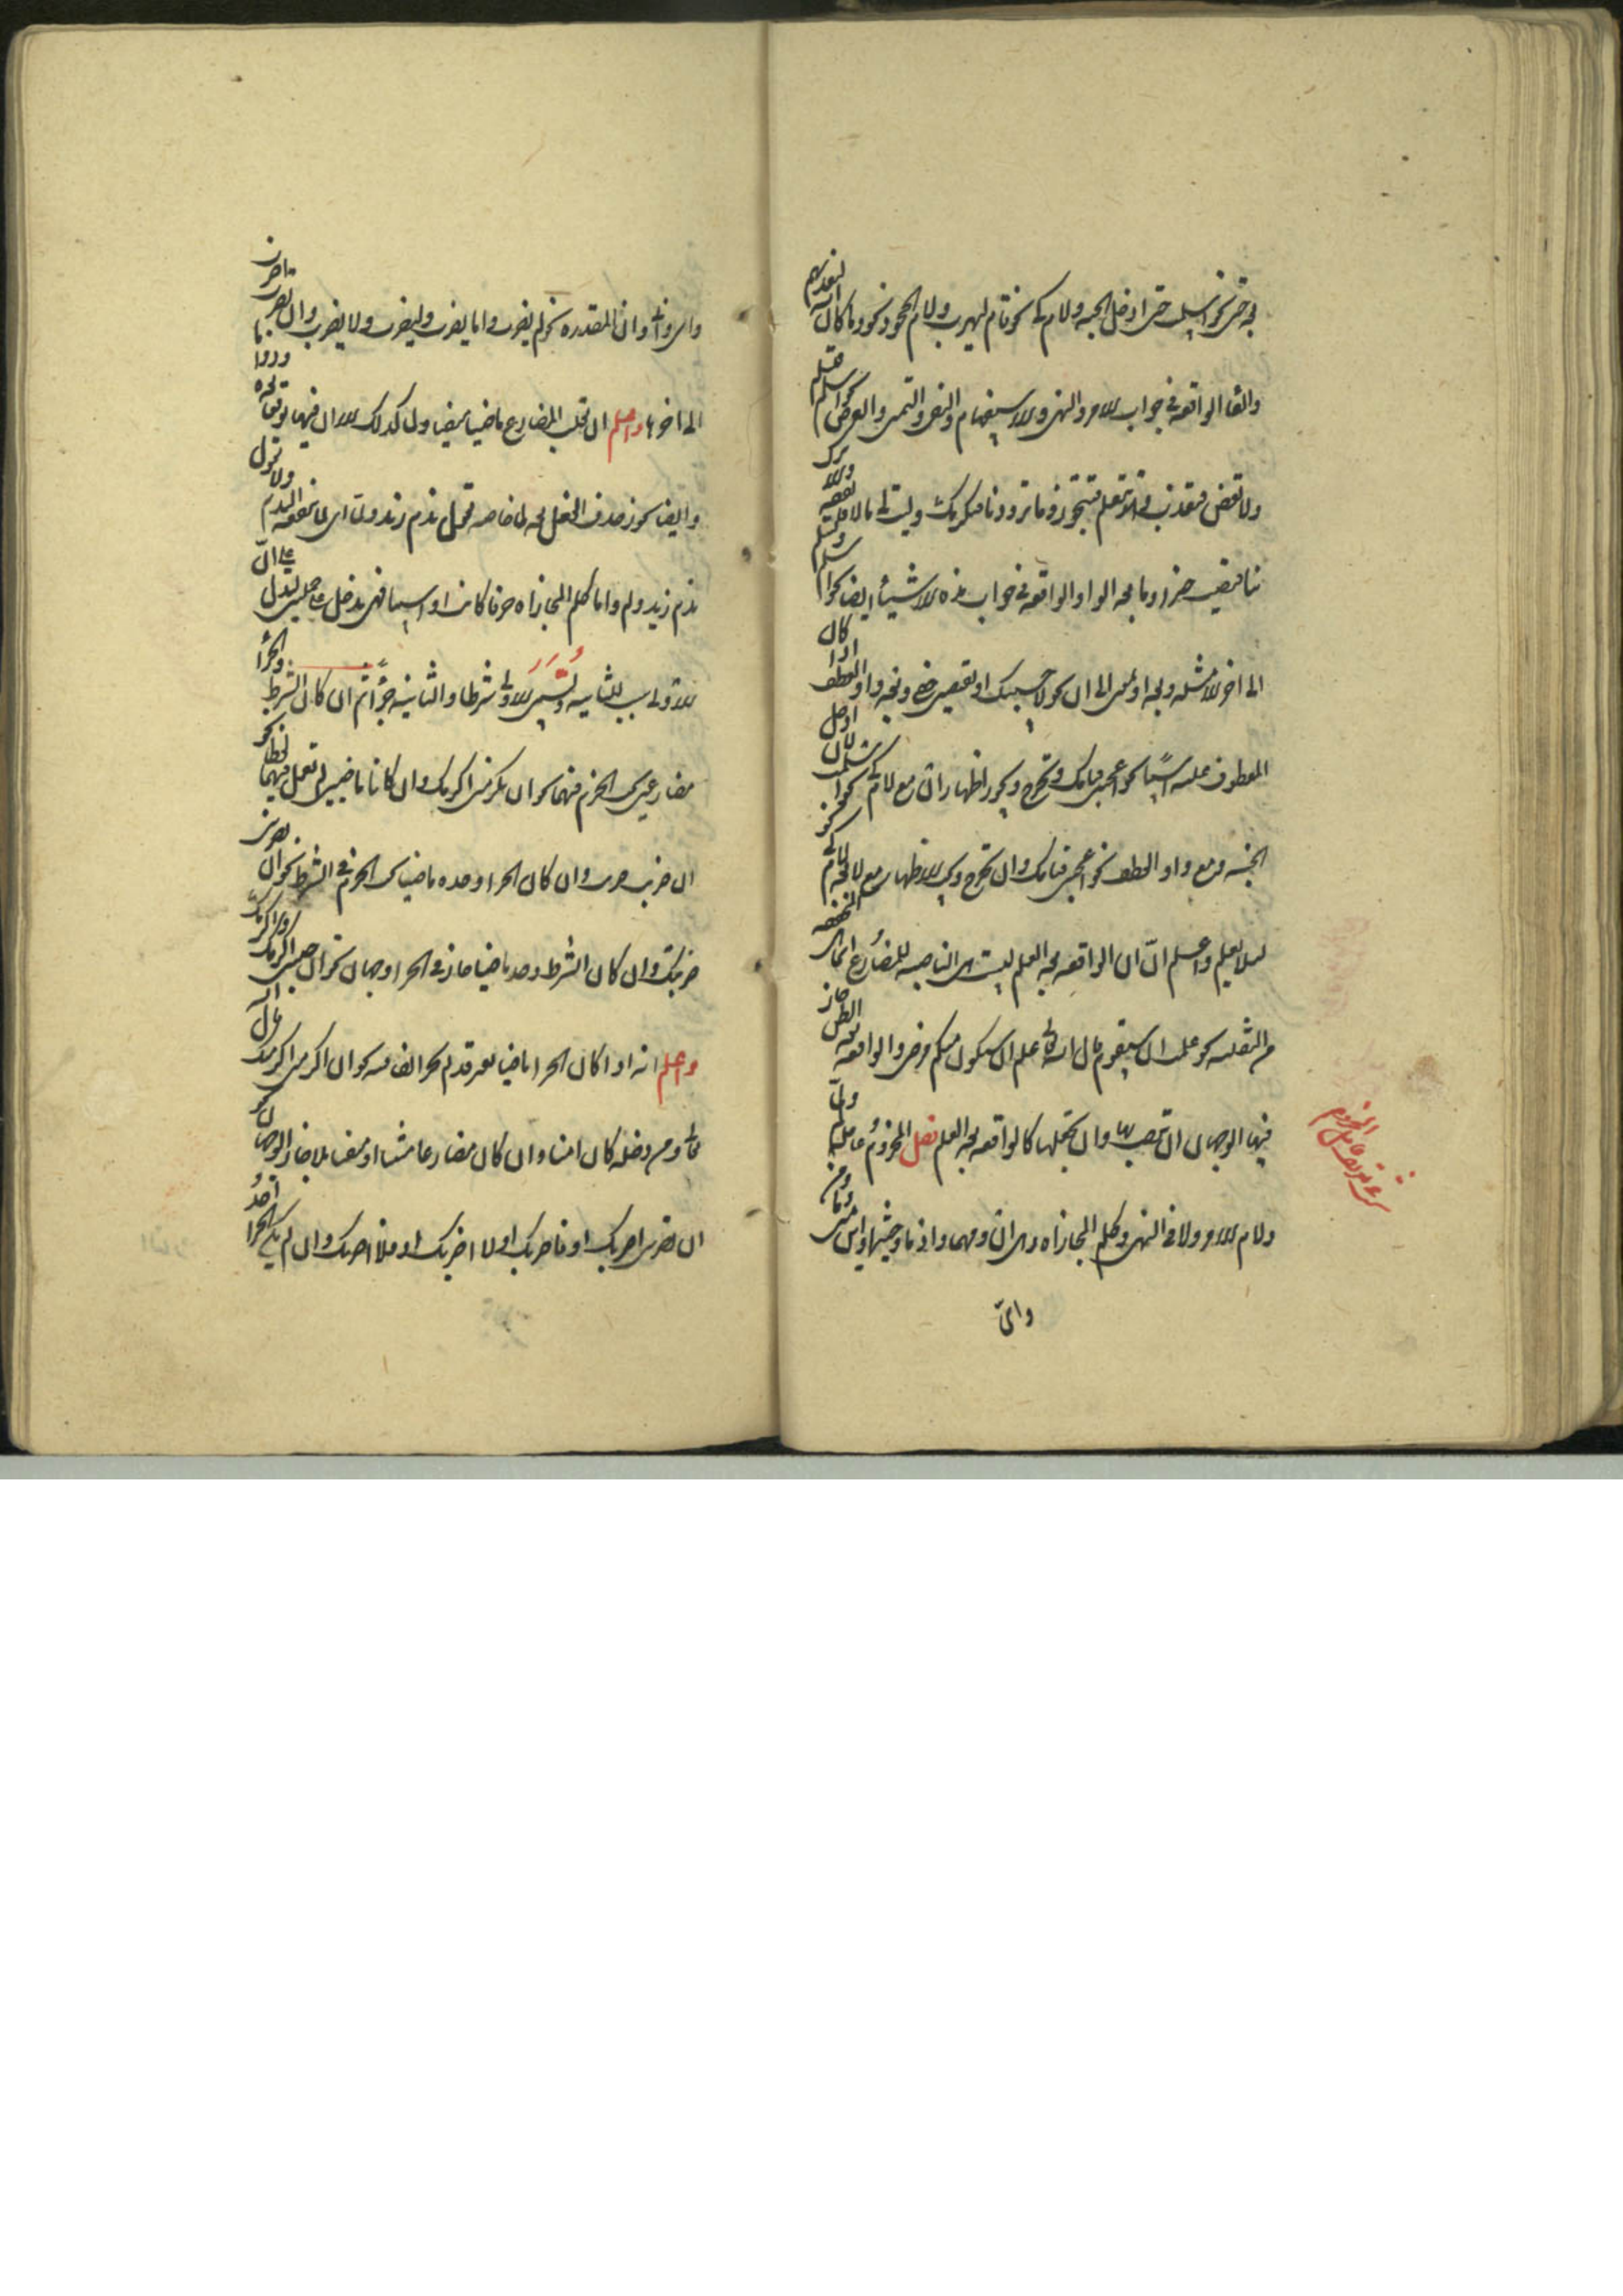 بعد حتى نحو اسلمت حتى ادخل الجنه ولام كى نحو قام ليضرب ولام الجحود نحو وما كان الله ليعذبهم
والفا الواقعه فى جواب الامر والنهى والاستفهام والنفى والتمنى والعرض نحو اسلم فتسلم
ولا تعص فتعذب وهل تعلم فتنجو وما تزورنا فنكرمك وليت لى مالا فانفقه والا تنزل
بنا فتصيب خيرا وما بعد الواو الواقعه فى جواب هذه الاشياء ايضا نحو اسلم وتسلم
الى اخر الامثله وبعد او بمعنى الى ان نحو لاحبسنك او تعطينى حقى وبعد واو العطف اذا كان
المعطوف عليه اسما نحو اعجبنى قيامك وتخرج ويجوز اظهار ان مع لام كى نحو اسلمت لان ادخل
الجنه ومع واو العطف نحو اعجبنى قيامك وان تخرج ويجب الاظهار مع لا بعد لام كى نحو
لئلا يعلم واعلم ان ان الواقعه بعد العلم ليست هى الناصبه للمضارع انما هى المخففه
من المثقله نحو علمت ان سيقوم قال الله تعالى علم ان سيكون منكم مرضى والواقعه بعد الظن جاز
فيها الوجهان ان تنصب بها وان تجعلها كالواقعه بعد العلم فصل المجزوم عامله لم ولما
ولام الامر ولا فى النهى وكلم المجازاه وهى ان ومهما واذما وحيثما واين ومتى وما ومن
واى
واى وانى وان المقدره نحو لم يضرب ولما يضرب وليضرب ولا يضرب وان تضرب اضرب
الى اخرها واعلم ان لم تقلب المضارع ماضيا منفيا ولما كذلك الا ان فيها توقعا بعده ودواما
وايضا يجوز حذف الفعل بعد لما خاصه تقول ندم زيد ولما اى لما ينفعه الندم ولا تقول
ندم زيد ولم واما كلم المجازاه حرفا كانت او اسما فهى تدخل على جملتين لتدل على ان
الاولى سبب للثانيه وتسمى الاولى شرطا والثانيه جزاء ثم ان كان الشرط والجزا
مضارعين يجب الجزم فيهما نحو ان تكرمنى اكرمك وان كانا ماضيين لم تعمل فيهما لفظا نحو
ان ضربت ضربت وان كان الجزا وحده ماضيا يجب الجزم فى الشرط نحو ان تضربنى
ضربتك وان كان الشرط وحده ماضيا جاز فى الجزا وجهان نحو ان جئتنى اكرمك
واعلم انه اذا كان الجزا ماضيا بغير قد لم يجز الفا فيه نحو ان اكرمتنى اكرمتك قال الله
تعالى ومن دخله كان امنا وان كان مضارعا مثبتا او منفيا بلا جاز الوجهان نحو
ان تضربنى اضربك او فاضربك او لا اضربك او فلا اضربك وان لم يكن الجزا احد